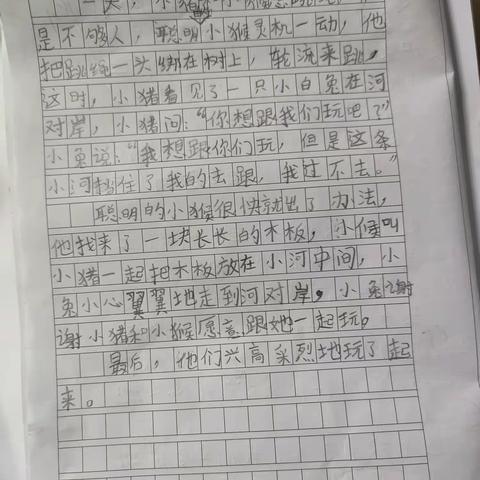 一天，小猪和小猴想跳绳，
是不够人，聪明小猴灵机一动，他
把跳绳一头绑在树上，轮流来跳，
这时，小猪看见了一只小白兔在河
对岸，小猪问：“你想跟我们玩吧？”
小兔说：“我想跟你们玩，但是这条
小河挡住了我的去跟，我过不去。”
聪明的小猴很快就出了办法，
他找来了一块长长的木板，小候叫
小猪一起把木板放在小河中间，小
兔小心翼翼地走到河对岸，小兔谢
谢小猪和小猴愿意跟她一起玩。
最后，他们兴高采烈地玩了起
来。